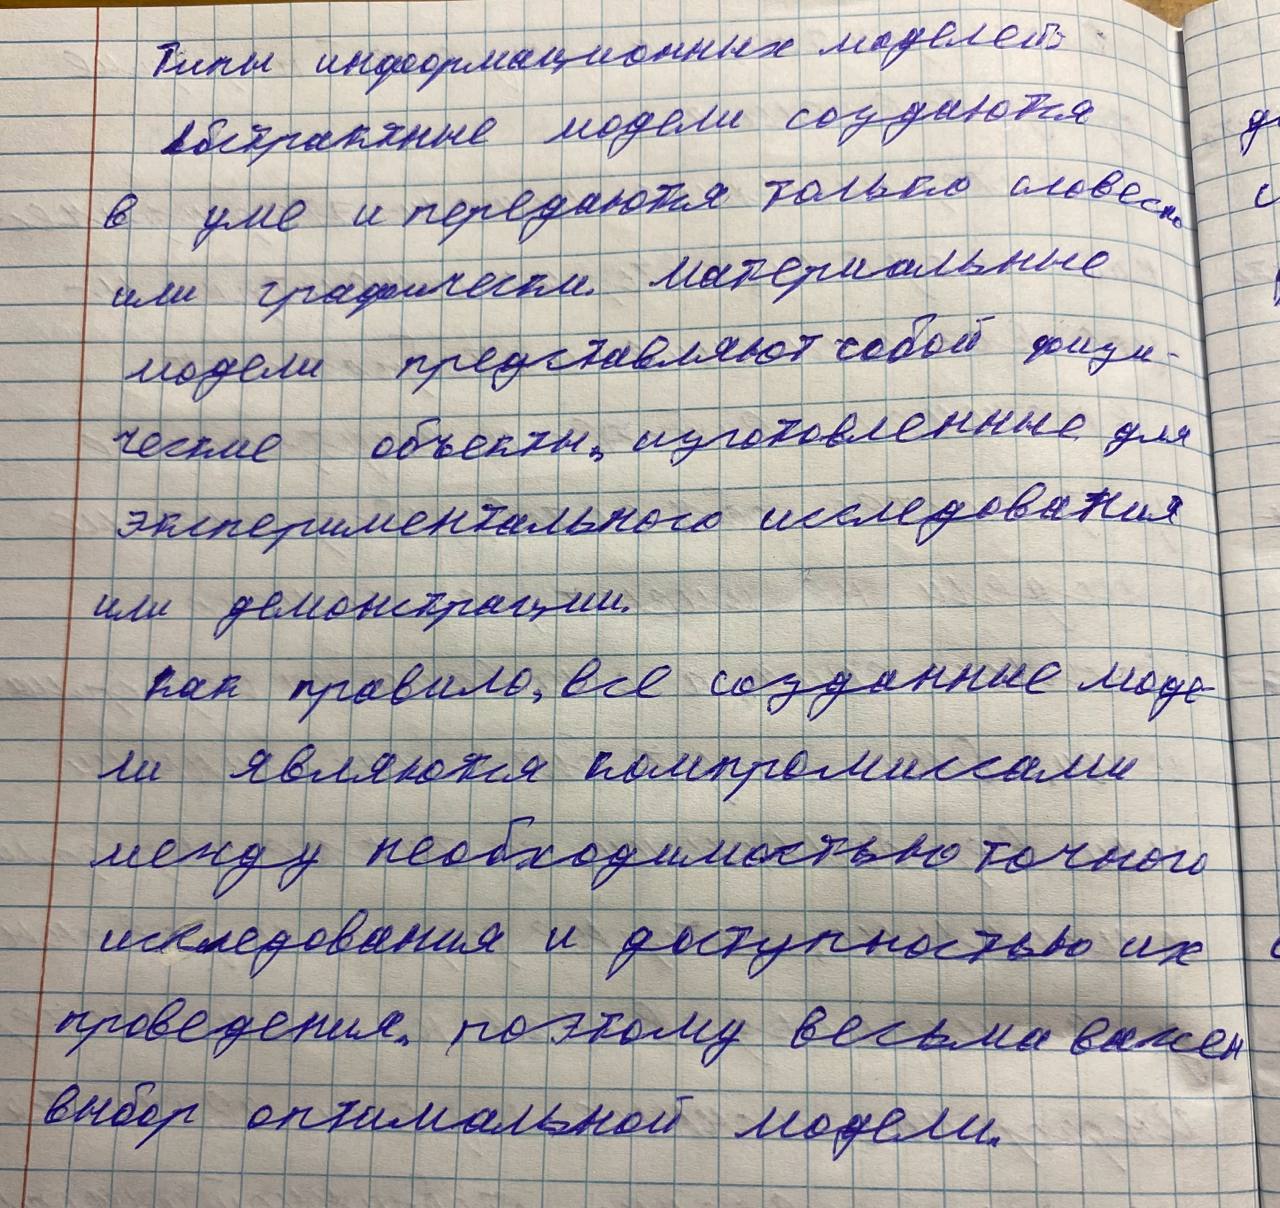 Типы информационных моделей
Абстрактные модели создаются
в уме и передаются только словесно
или графически. Материальные
модели представляют собой физи-
ческие объекты, изготовленные для
экспериментального исследования
или демонстрации.
Как правило, все созданные моде-
ли являются компромиссами
между необходимостью точного
исследования и доступностью их
проведения, поэтому весьма важен
выбор оптимальной модели.